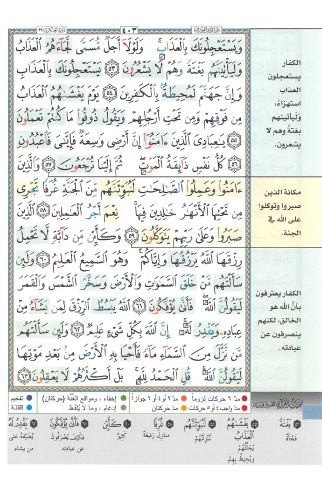 ٤٠٣
وَيَسْتَعْجِلُونَكَ بِالْعَذَابِ ۚ وَلَوْلَا أَجَلٌ مُّسَمًّى لَّجَاءَهُمُ الْعَذَابُ
وَلَيَأْتِيَنَّهُم بَغْتَةً وَهُمْ لَا يَشْعُرُونَ ٥٣ يَسْتَعْجِلُونَكَ بِالْعَذَابِ
وَإِنَّ جَهَنَّمَ لَمُحِيطَةٌ بِالْكَافِرِينَ ٥٤ يَوْمَ يَغْشَاهُمُ الْعَذَابُ
مِن فَوْقِهِمْ وَمِن تَحْتِ أَرْجُلِهِمْ وَيَقُولُ ذُوقُوا مَا كُنتُمْ تَعْمَلُونَ
٥٥ يَا عِبَادِيَ الَّذِينَ آمَنُوا إِنَّ أَرْضِي وَاسِعَةٌ فَإِيَّايَ فَاعْبُدُونِ
٥٦ كُلُّ نَفْسٍ ذَائِقَةُ الْمَوْتِ ۖ ثُمَّ إِلَيْنَا تُرْجَعُونَ ٥٧ وَالَّذِينَ
آمَنُوا وَعَمِلُوا الصَّالِحَاتِ لَنُبَوِّئَنَّهُم مِّنَ الْجَنَّةِ غُرَفًا تَجْرِي
مِن تَحْتِهَا الْأَنْهَارُ خَالِدِينَ فِيهَا ۚ نِعْمَ أَجْرُ الْعَامِلِينَ ٥٨ الَّذِينَ
صَبَرُوا وَعَلَىٰ رَبِّهِمْ يَتَوَكَّلُونَ ٥٩ وَكَأَيِّن مِّن دَابَّةٍ لَّا تَحْمِلُ
رِزْقَهَا اللَّهُ يَرْزُقُهَا وَإِيَّاكُمْ ۚ وَهُوَ السَّمِيعُ الْعَلِيمُ ٦٠ وَلَئِن
سَأَلْتَهُم مَّنْ خَلَقَ السَّمَاوَاتِ وَالْأَرْضَ وَسَخَّرَ الشَّمْسَ وَالْقَمَرَ
لَيَقُولُنَّ اللَّهُ ۖ فَأَنَّىٰ يُؤْفَكُونَ ٦١ اللَّهُ يَبْسُطُ الرِّزْقَ لِمَن يَشَاءُ مِنْ
عِبَادِهِ وَيَقْدِرُ لَهُ ۚ إِنَّ اللَّهَ بِكُلِّ شَيْءٍ عَلِيمٌ ٦٢ وَلَئِن سَأَلْتَهُم
مَّن نَّزَّلَ مِنَ السَّمَاءِ مَاءً فَأَحْيَا بِهِ الْأَرْضَ مِن بَعْدِ مَوْتِهَا
لَيَقُولُنَّ اللَّهُ ۚ قُلِ الْحَمْدُ لِلَّهِ ۚ بَلْ أَكْثَرُهُمْ لَا يَعْقِلُونَ ٦٣
الكفار
يستعجلون
العذاب
استهزاءً،
وليأتينهم
بغتة وهم لا
يشعرون.
مكانة الذين
صبروا وتوكلوا
على الله في
الجنة.
الكفار يعترفون
بأن الله هو
الخالق، لكنهم
ينصرفون عن
عبادته.
مدّ ٦ حركات لزوماً
مدّ ٢ أو ٤ أو ٦ جوازاً
إخفاء، ومواقع الغُنَّة (حركتان)
تفخيم
مدّ واجب ٤ أو ٥ حركات
مدّ حركتان
إدغام، وما لا يُلفَظ
قلقلة
بَغْتَةً
فجأة
يَغْشَاهُمُ الْعَذَابُ
يُجَلِّلُهُمْ ويحيط بهم
لَنُبَوِّئَنَّهُم
لننزلنّهم
غُرَفًا
منازل رفيعة
كَأَيِّن
كثير
فَأَنَّىٰ يُؤْفَكُونَ
فكيف يُصرفون عن عبادته
يَقْدِرُ لَهُ
يُضيّقه على من يشاء